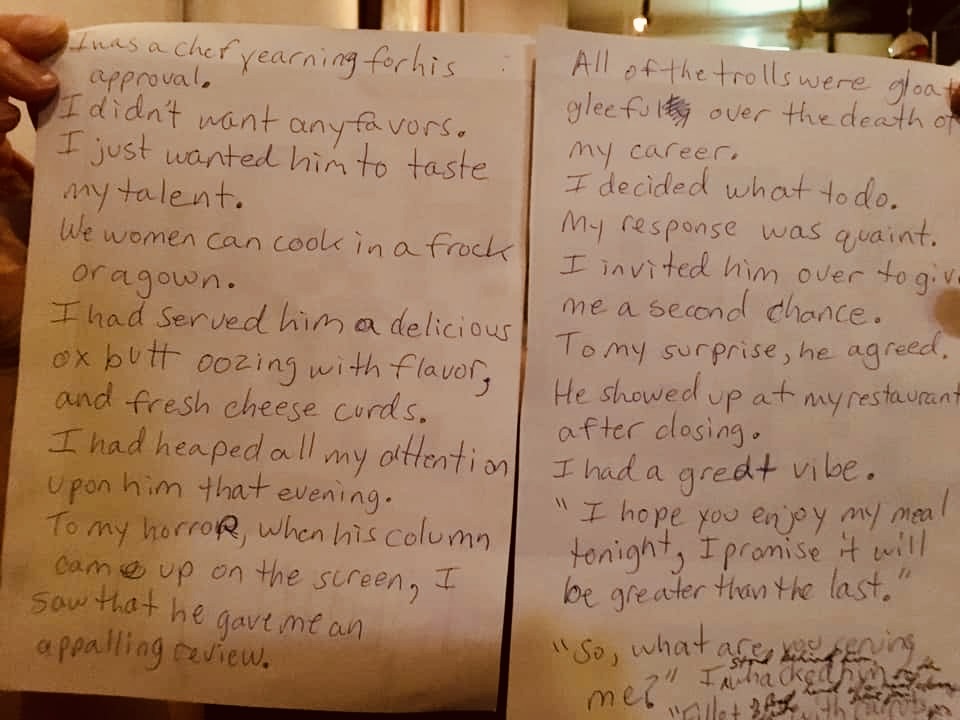 I was a chef yearning for his
approval.
I didn't want any favors.
I just wanted him to taste
my talent.
We women can cook in a frock
or a gown.
I had served him a delicious
ox butt oozing with flavor,
and fresh cheese curds.
I had heaped all my attention
upon him that evening.
To my horror, when his column
came up on the screen, I
saw that he gave me an
appalling review.
All of the trolls were gloat
gleeful over the death of
my career.
I decided what to do.
My response was quaint.
I invited him over to giv
me a second chance.
To my surprise, he agreed.
He showed up at my restaurant
after closing.
I had a great vibe.
"I hope you enjoy my meal
tonight, I promise it will
be greater than the last."
"So, what are you serving
stood behind him
me?" I whacked him
"Fillet with